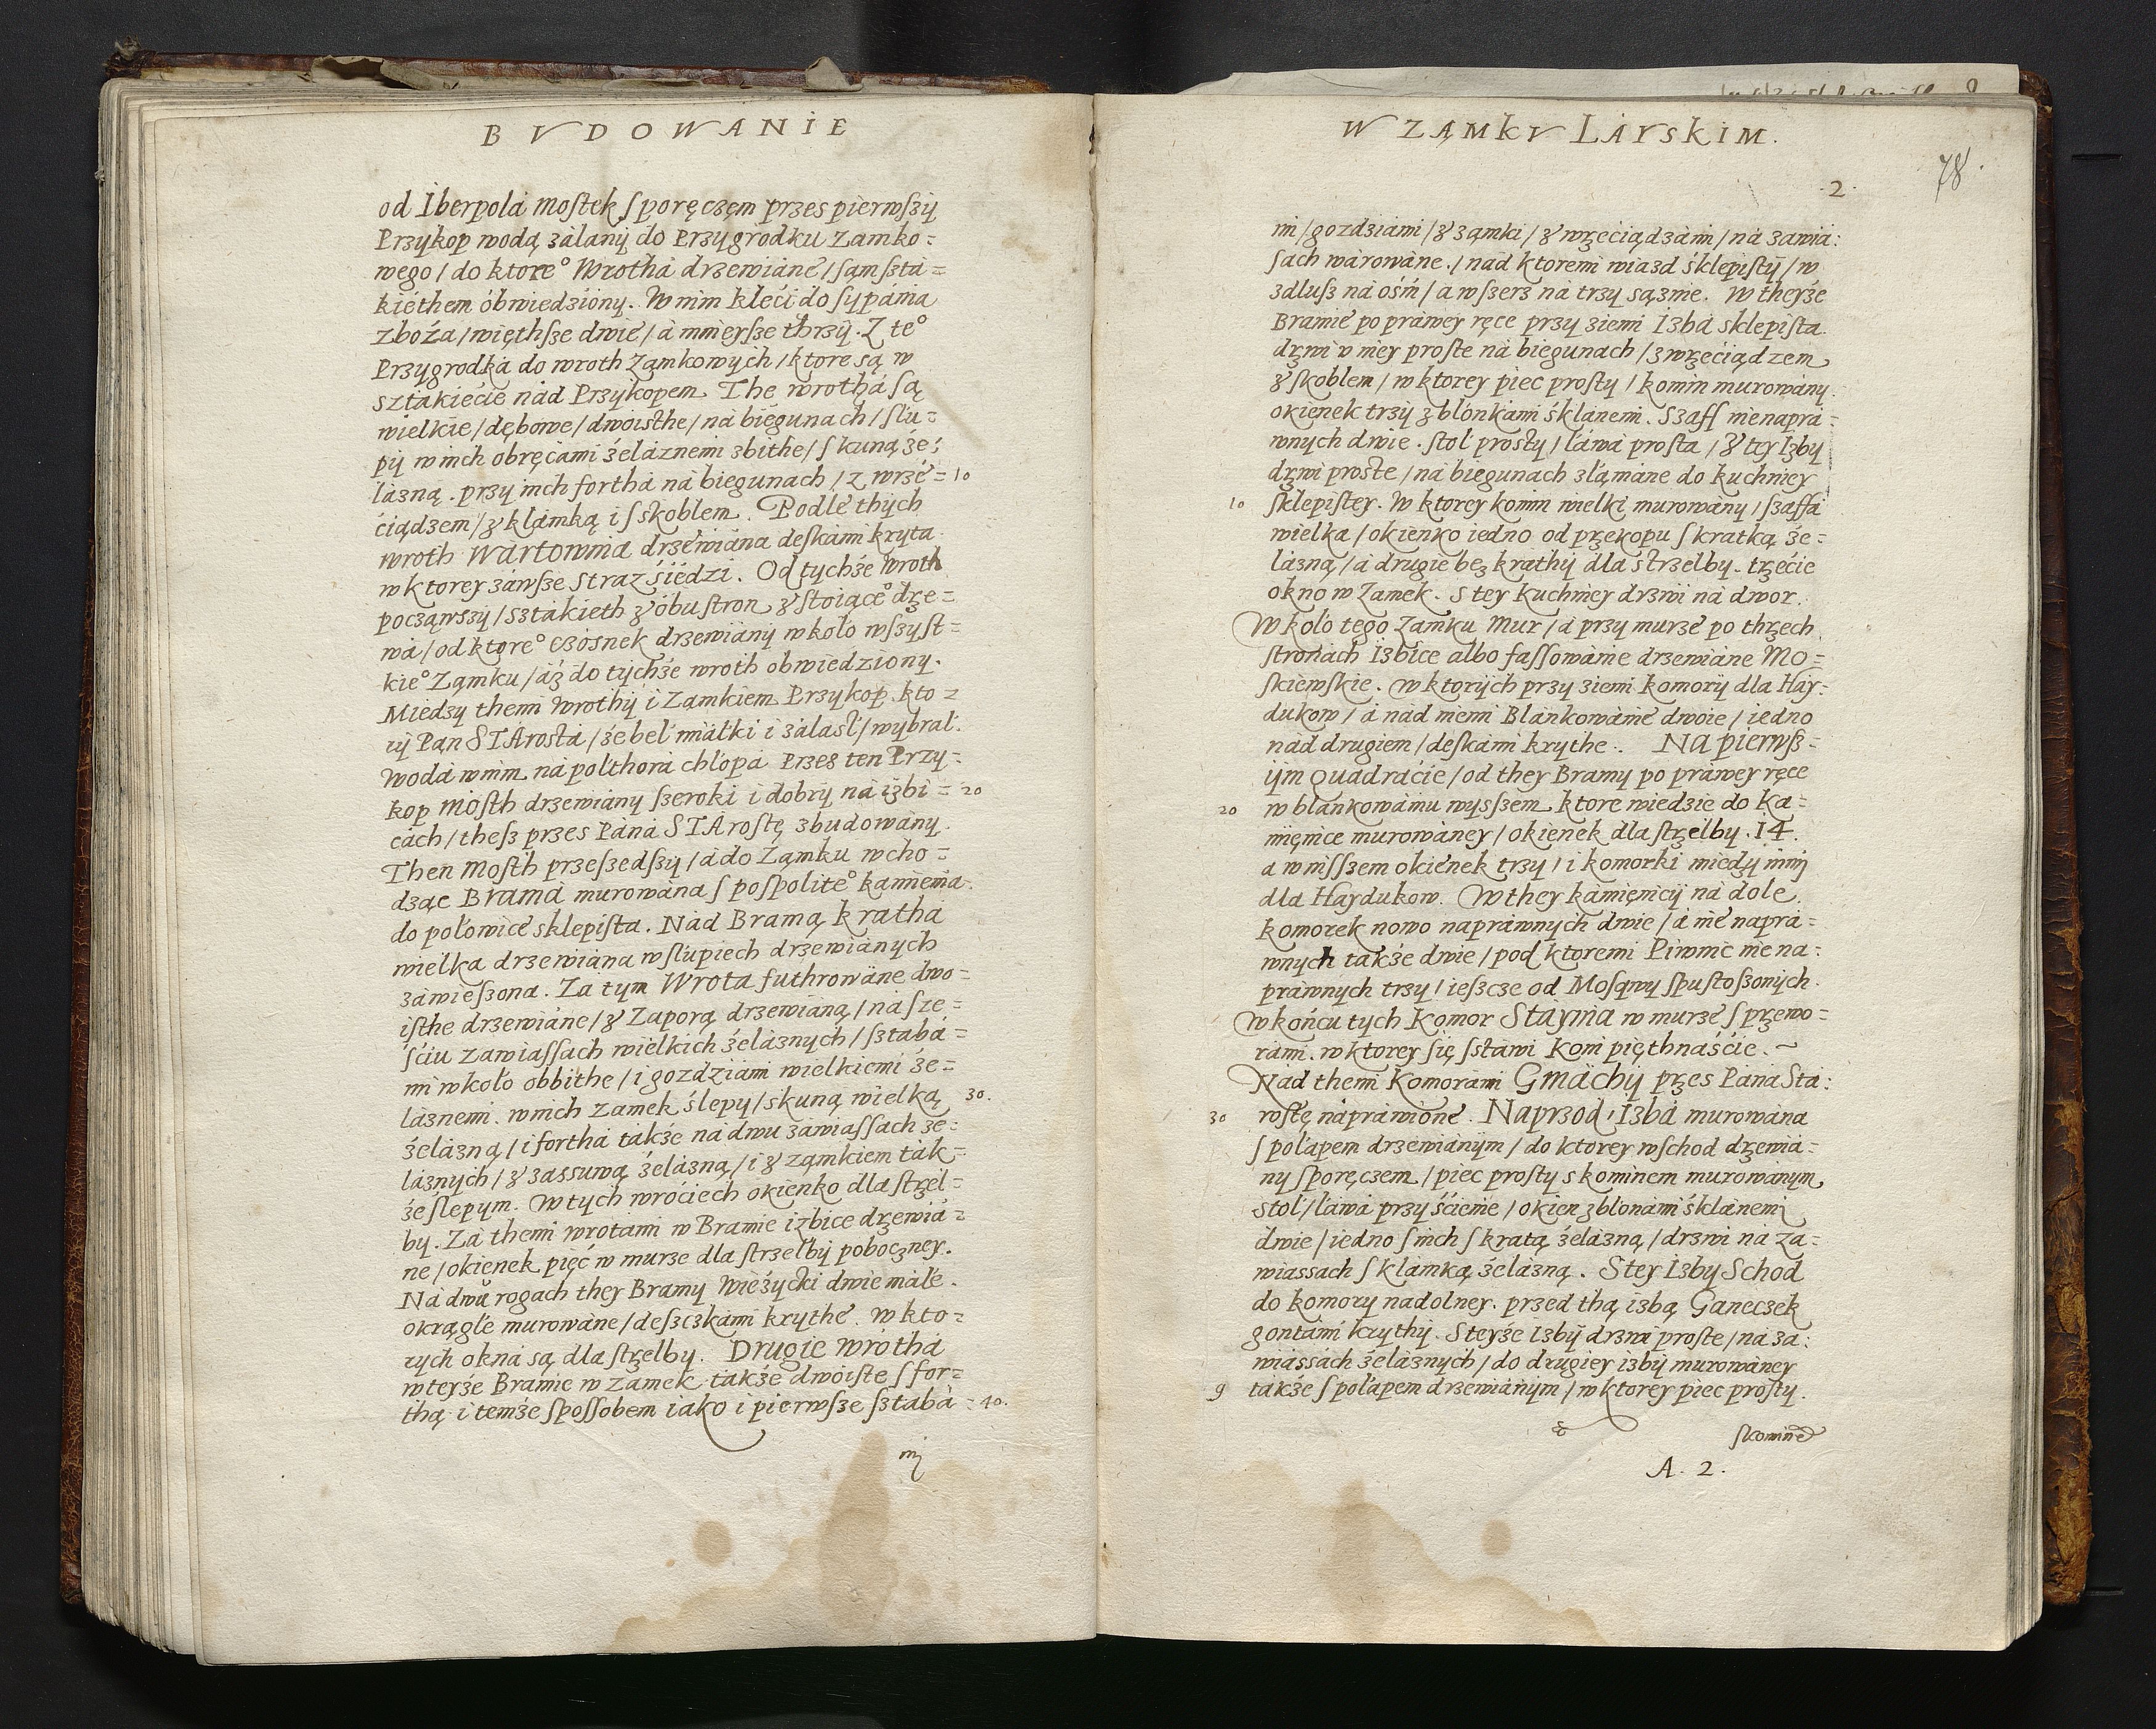 BVDOWANIE
od Iberpolá mostek ſ poręczęm przes pierwſzÿ
Przykop wodą zálanÿ do Przygrodku Zamko=
wego / do ktore° Wrothá drzewiáne / ſąm ſztá=
kiéthem óbwiedzióny. W nim kleći do ſypánia
Zbożá / więthſze dwie / á mnieyſze thrzÿ. Z te°
Przygrodká do wroth Ząmkowych / ktore są w
sztákiećie nád Przykopem. The wrothá ſą
wielkie / dębowe / dwoisthe / ná biegunach / ſlu=
pÿ w nich obręćami żeláznemi zbithe / ſ kuną że=
lázną. przy nich forthá ná biegunach / z wrzé= 10
ćiądzem / z klámką i ſ skoblem. Podle thych
wroth Wartownia drzéwiána deſkámi kryta.
w ktorey záwſze Straz śiedzi. Od tychże Wroth
począwszy / sztákieth z óbu stron z stoiące° drze=
wá / od ktore° czosnek drzewiány w koło wſzyst=
kie° Ząmku / áż do tychże wroth obwiedziony.
Miedzy themi Wrothÿ i Zamkiem Przykop. kto=
rÿ Pan STArostá / że bel miałki i zálasl / wybral.
Wodá w nim ná polthorá chlopá Przes ten Przy=
kop Mosth drzewiány ſzeroki i dobry ná izbi= 20
cách / theſz przes Páná STArostę zbudowány.
Then Mosth przeſzedſzÿ / á do Ząmku wcho=
dząc Bramá murowána ſ poſpolite° kámieniá.
do polowice sklepista. Nád Bramą krathá
wielka drzewiána w slupiech drzewiánych
záwieſzona. Za tym Wrota futhrowáne dwo=
isthe drzewiáne / z Zaporą drzewianą / ná ſze=
śćiu zawiaſſach wielkich żeláznych / ſztabá=
mi w koło obbithe / i gozdziámi wielkiemi że=
láznemi. w nich zamek ślepy / skuną wielką 30.
żelázną / i forthá tákże ná dwu záwiaſſach że=
láznych / z zassuwą żelázną / i z ząmkiem ták=
że ſlepym. W tych wroćiech okienko dla strzel=
by. Zá themi wrotami w Bramie izbice drzewiá=
ne / okienek pięć w murze dla strzelbÿ poboczney.
Ná dwu rogach they Bramy Wieżyczki dwie mále.
okrągle murowáne / deſzczkámi krythe. w kto=
rych okná są dla strzelby. Drugie wrothá
w teyże Bramie w zamek tákże dwoiste ſ for=
thą i temże ſpoſſobem iáko i pierwſze ſztabá= 40.
mi
W ZĄMKV LAYSKIM.
78.
.2.
mi / gozdziámi / z ząmki / z wrzećiądzámi / ná zawiá:
ſach wárowáne. / nad ktoremi wiazd śklepistÿ / w
zdluſz ná óśḿ / á w ſzerz ná trzy sążnie. W theyże
Bramie po práwey ręce przy ziemi Izbá sklepista.
drzwi v niey proste ná biegunach / z wrzećiądzem
z skoblem / w ktorey piec prosty / komin murowány.
okienek trzÿ z blonkami śklanemi. Szaff nienaprá=
wnych dwie. stol prosty / láwá prosta / z tey Izby
drzwi proste / ná biegunach zlámáne do kuchniey
10 sklepistey. W ktorey komin wielki murowány / ſzaffá
wielka / okienko iedno od przekopu ſ kratką że=
lázną / á drugie bez krathÿ dla strzelby. trzećie
okno w Zamek. s tey Kuchniey drzwi ná dwor.
W kolo tego Zamku Mur / á przy murze po thrzech
stronách Izbice albo faſſowánie drzewiáne Mo=
skiewskie. w ktorÿch przy ziemi komorÿ dla Hay:
dukow / á nád niemi Blankowánie dwoie / iedno
nád drugiem / deſkámi krythe. Na pierwſz=
ÿm Quadraćie / od they Bramy po práwey ręce
20 w blankowániu wyſszem ktore wiedzie do Ka=
mięnice murowáney / okienek dla strzelby. 14.
a w niſszem okienek trzy / i komorki miedzy inimi
dla Haydukow. W they kamięnicÿ ná dole
komorek nowo napráwnych dwie / á nie naprá=
wnych tákże dwie / pod ktoremi Piwnic nie na=
práwnych trzy / ieſzcze od Mosqwy ſpustoſzonych.
w końcu tych Komor Stáynia w murze ſ przewo=
rámi. w ktorey się ſstáwi Koni pięthnaśćie. ~
Nád themi Komorámi Gmáchÿ przes Páná Sta:
30 rostę nápráwione. Naprzod / Izbá murowána
ſ polapem drzewiánÿm / do ktorey wſchod drzewiá=
ny ſporęczem / piec prosty s kominem murowánym
Stol / láwá przy śćienie / okien z blonámi śklánemi
dwie / iedno ſ nich ſ kratą żelázną / drzwi ná za=
wiassach ſ klámką żelázną. S tey Izby Schod
do komory nadolney. przed thą izbą Ganeczek
gontámi krythÿ. S teyże izbÿ drzwi proste / ná za:
wiássách żeláznych / do drugiey izbÿ murowáney
9 tákże ſ polapem drzewiánÿm / w ktorey piec prosty.
A. 2.